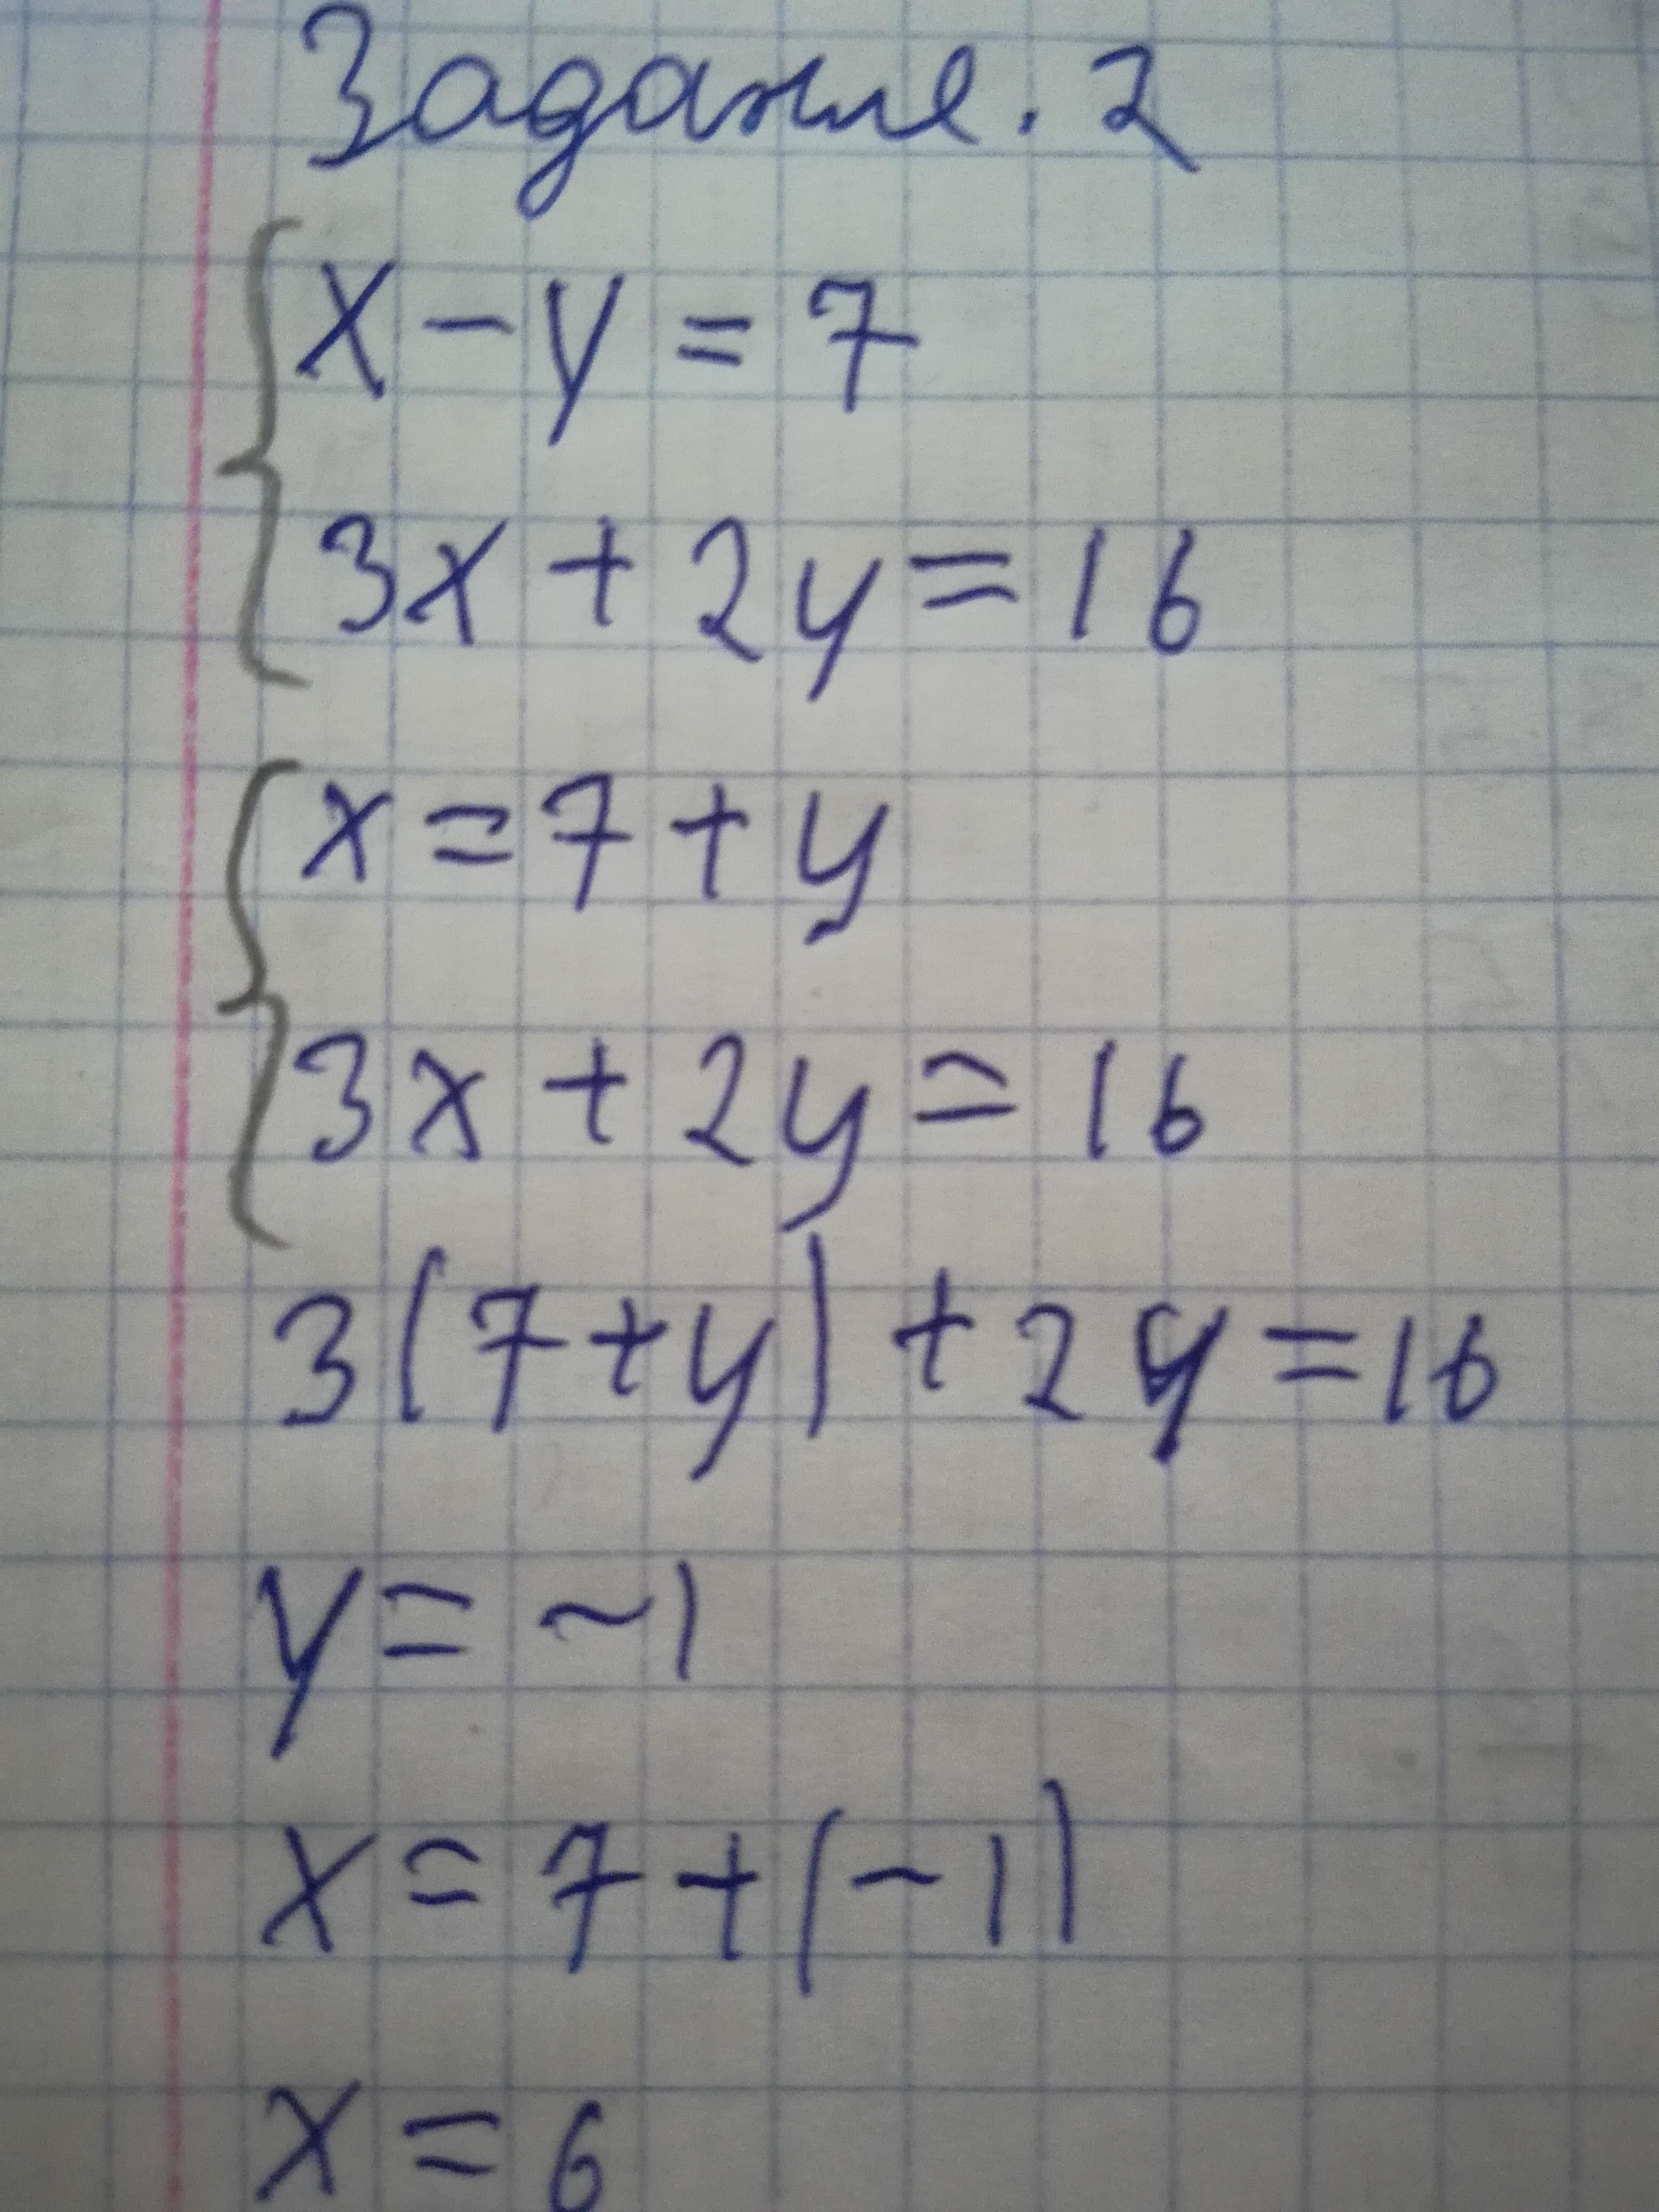 Задание. 2
x - y = 7
3x + 2y = 16
x = 7 + y
3x + 2y = 16
3(7 + y) + 2y = 16
y = -1
x = 7 + (-1)
x = 6